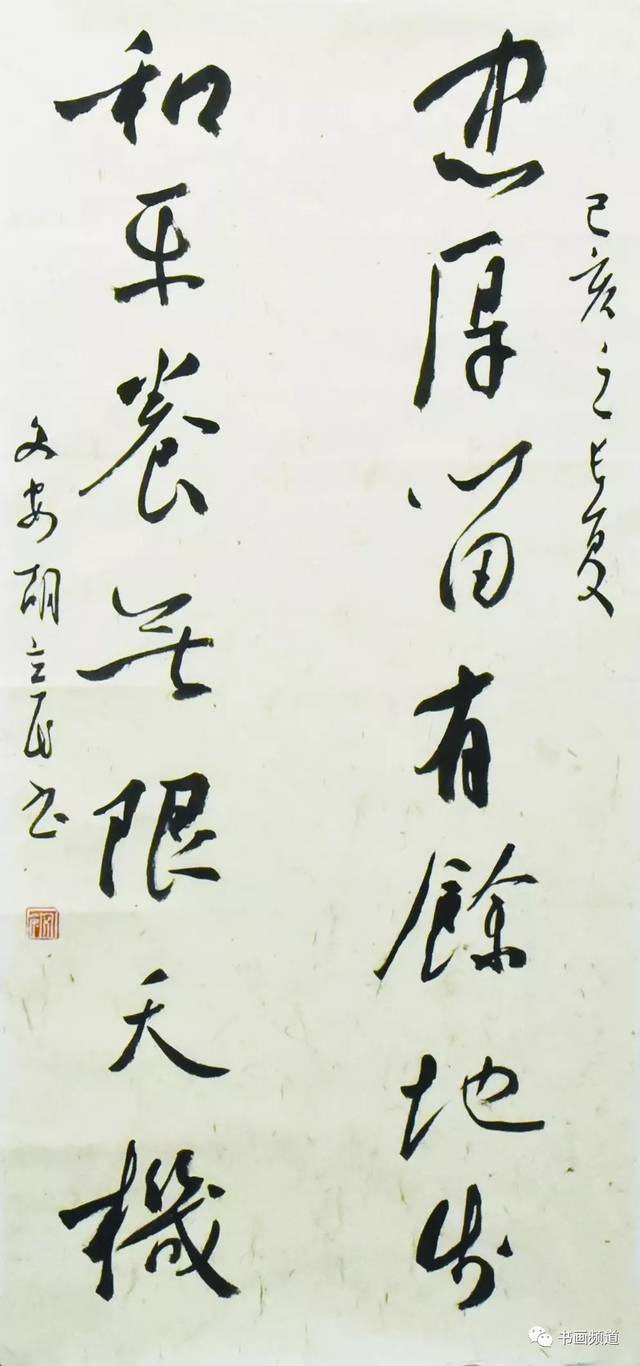 己亥之长夏
忠厚留有餘地步
和平養無限天機
文安胡立民书
书画频道